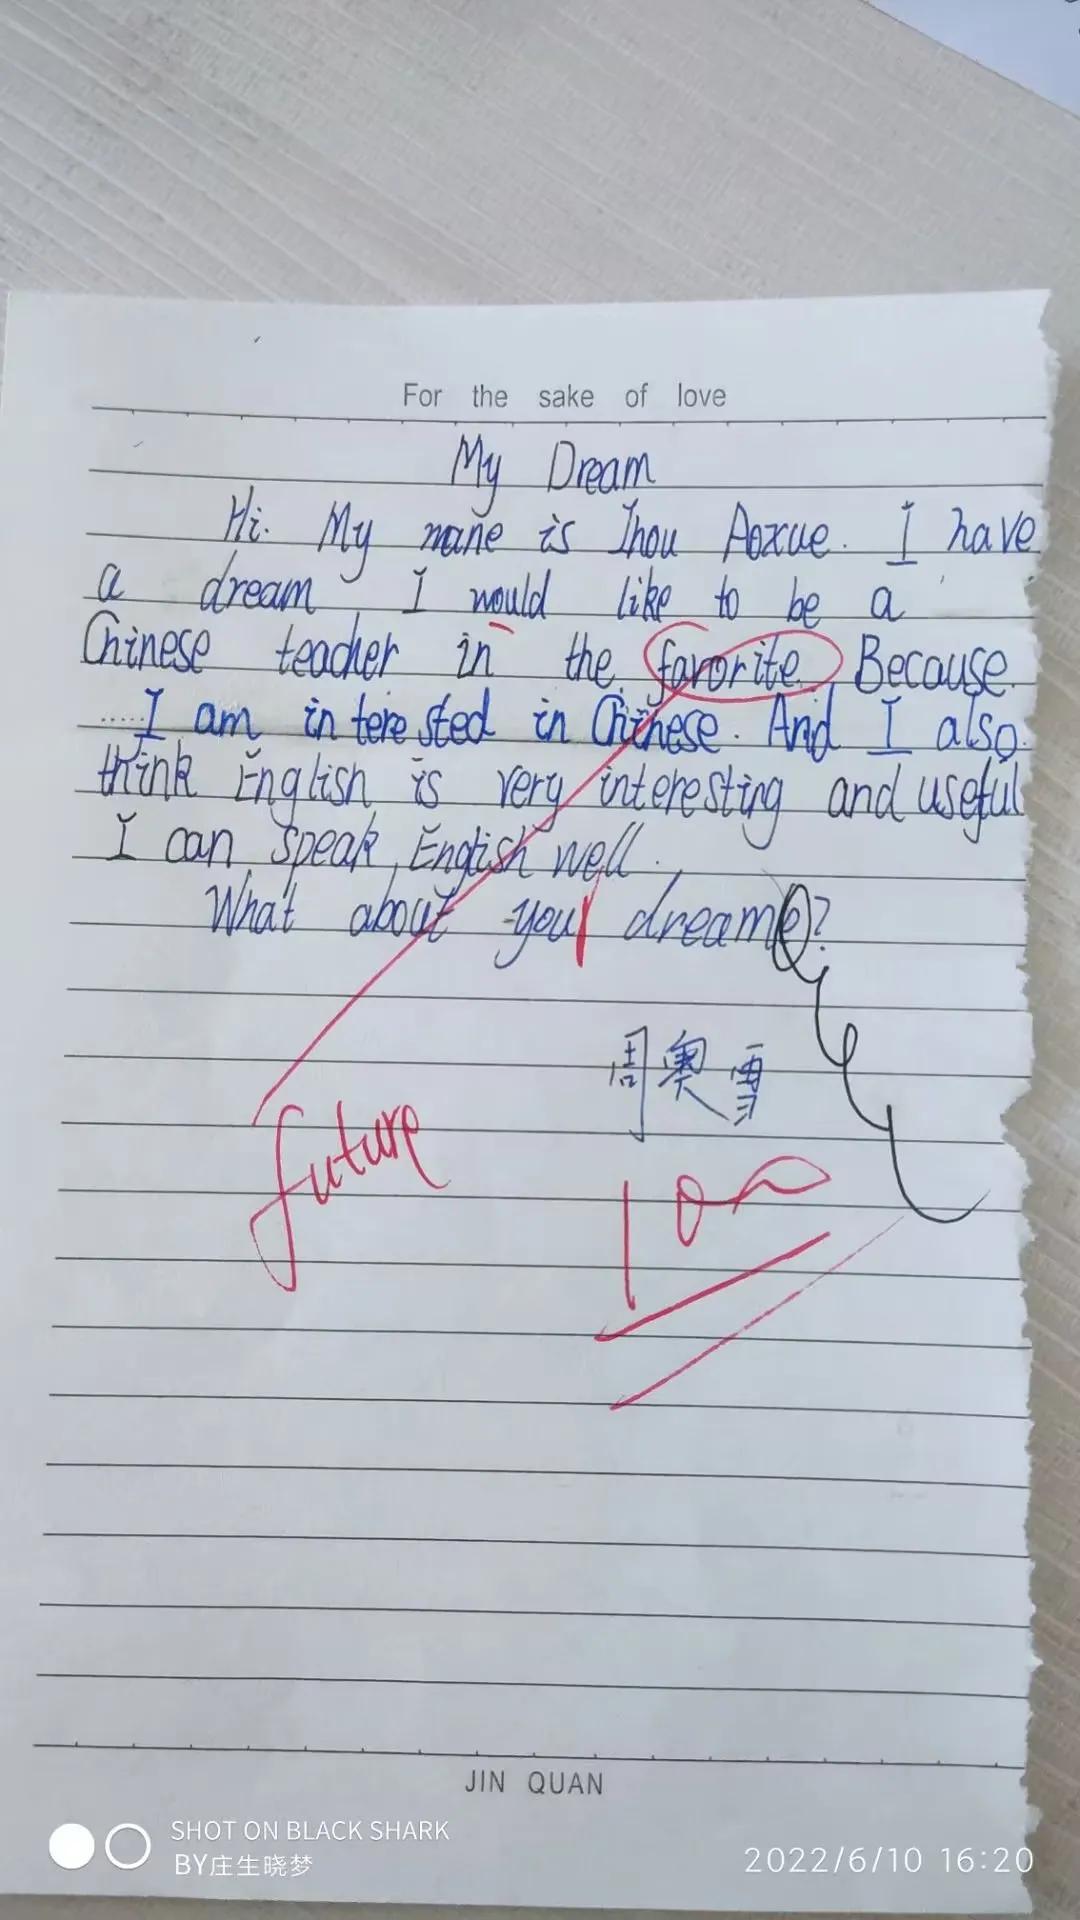 For the sake of love
My Dream
Hi. My name is Zhou Aoxue. I have
a dream I would like to be a
Chinese teacher in the favorite. Because
I am interested in Chinese. And I also
think English is very interesting and useful
I can speak English well.
What about your dream?
周奥雪
future
100
JIN QUAN
SHOT ON BLACK SHARK
BY庄生晓梦
2022/6/10 16:20